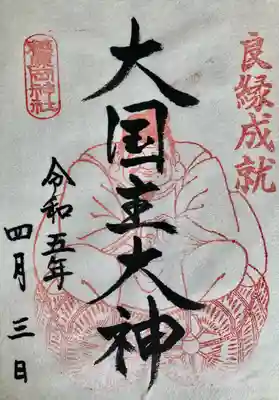 良縁成就
大国主大神
令和五年
四月三日